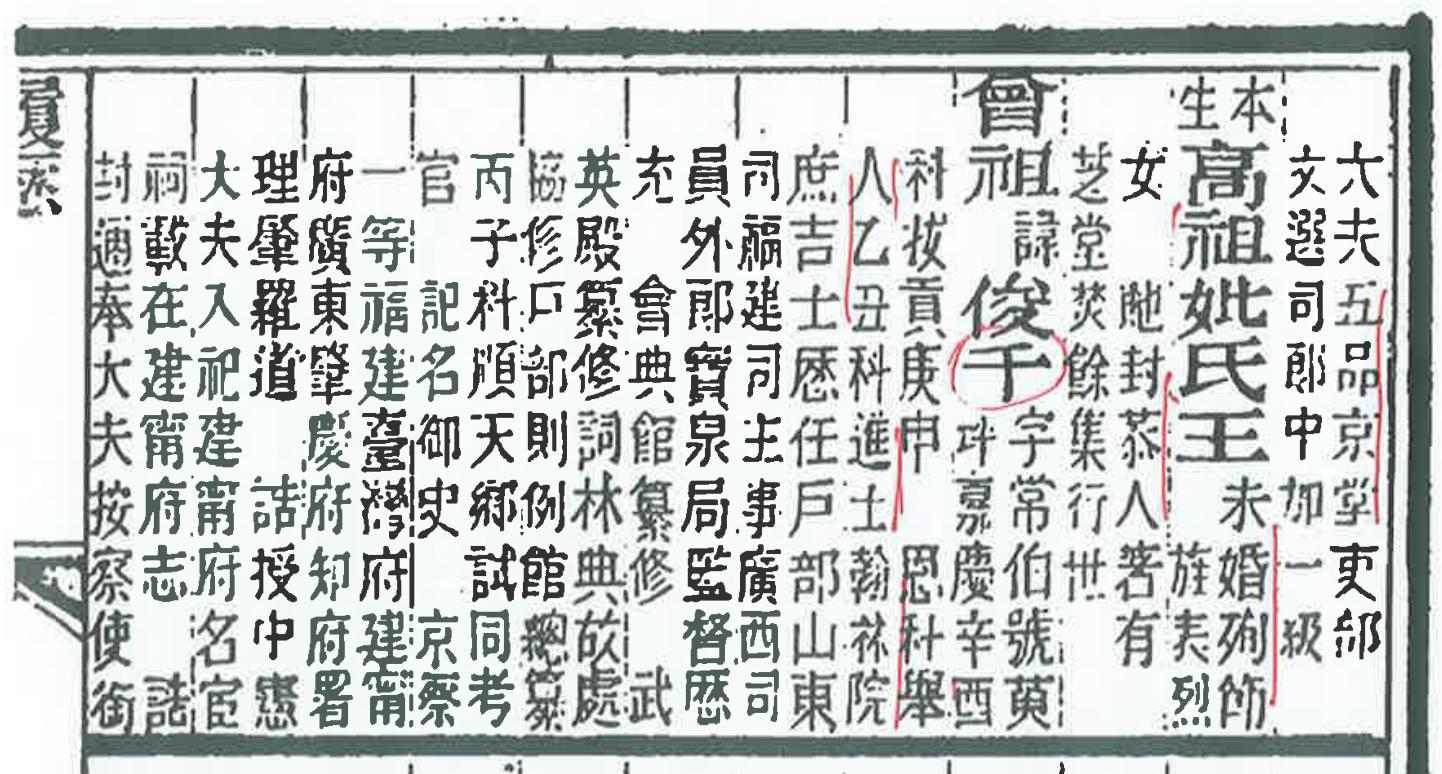 大夫五品京堂吏部
文選司郎中加一級
本生高祖妣氏王未婚殉節
旌表烈
女貤封恭人著有
芝堂焚餘集行世
曾祖諱俊千字常伯號萸
斗嘉慶辛酉
科拔貢庚申恩科舉
人乙丑科進士翰林院
庶吉士歷任戶部山東
司福建司主事廣西司
員外郎寶泉局監督歷
充會典館纂修武
英殿纂修詞林典故處
協修戶部則例館總纂
丙子科順天鄉試同考
官記名御史京察
一等福建臺灣府建甯
府廣東肇慶府知府署
理肇羅道誥授中憲
大夫入祀建甯府名宦
祠載在建甯府志誥
封通奉大夫按察使銜
履歷